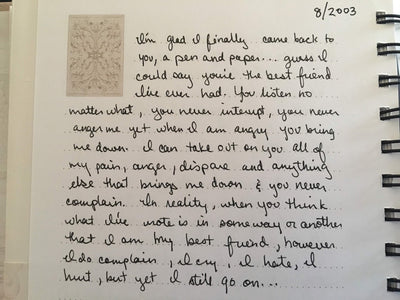 8/2003
I'm glad I finally came back to
you, a pen and paper... guess I
could say you're the best friend
I've ever had. You listen no
matter what, you never interupt, you never
anger me yet when I am angry you bring
me down. I can take out on you all of
my pain, anger, dispare and anything
else that brings me down & you never
complain. In reality, when you think
what I've wrote is in some way or another
that I am my best friend, however
I do complain, I cry, I hate, I
hurt, but yet I still go on...